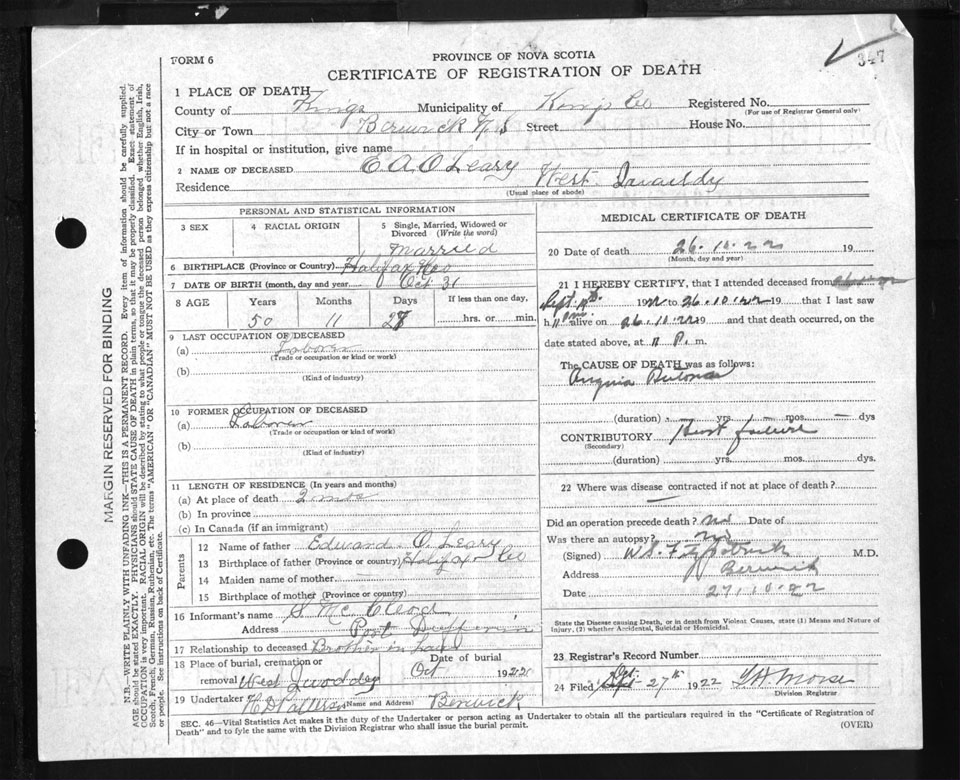 347
FORM 6
PROVINCE OF NOVA SCOTIA
CERTIFICATE OF REGISTRATION OF DEATH
1 PLACE OF DEATH
County of Kings Municipality of Kings Co Registered No.
(For use of Registrar General only)
City or Town Berwick N.S Street House No.
If in hospital or institution, give name
2 NAME OF DECEASED E A. O Leary
Residence West
(Usual place of abode)
PERSONAL AND STATISTICAL INFORMATION
3 SEX 4 RACIAL ORIGIN 5 Single, Married, Widowed or Divorced (Write the word)
Married
6 BIRTHPLACE (Province or Country) Halifax
7 DATE OF BIRTH (month, day and year) Oct 31
8 AGE Years Months Days If less than one day,
50 11 28 hrs. or min.
9 LAST OCCUPATION OF DECEASED
(a) Laborer
(Trade or occupation or kind or work)
(b)
(Kind of industry)
10 FORMER OCCUPATION OF DECEASED
(a) Laborer
(Trade or occupation or kind of work)
(b)
(Kind of industry)
11 LENGTH OF RESIDENCE (In years and months)
(a) At place of death 2 mos
(b) In province
(c) In Canada (if an immigrant)
Parents
12 Name of father Edward O. Leary
13 Birthplace of father (Province or country) Halifax Co
14 Maiden name of mother
15 Birthplace of mother (Province or country)
16 Informant's name S Mc Cleod
Address Port Dufferin
17 Relationship to deceased Brother in law
18 Place of burial, cremation or removal Date of burial
West Oct 192
19 Undertaker (Name and Address) Berwick
MEDICAL CERTIFICATE OF DEATH
20 Date of death 26.10.22 19
(Month, day and year)
21 I HEREBY CERTIFY, that I attended deceased from
Sept. 19 26.10.22 19 that I last saw
h alive on 26.10.22 19 and that death occurred, on the
date stated above, at 11 P. m.
The CAUSE OF DEATH was as follows:
Angina
(duration) yrs. mos. dys
CONTRIBUTORY Heart failure
(Secondary)
(duration) yrs. mos. dys.
22 Where was disease contracted if not at place of death?
Did an operation precede death? no Date of
Was there an autopsy? no
(Signed) W.S. Fitzpatrick M.D.
Address Berwick
Date 27.10.22
State the Disease causing Death, or in death from Violent Causes, state (1) Means and Nature of
Injury, (2) whether Accidental, Suicidal or Homicidal.
23 Registrar's Record Number
24 Filed Oct 27th 1922 Morse
Division Registrar
SEC. 46—Vital Statistics Act makes it the duty of the Undertaker or person acting as Undertaker to obtain all the particulars required in the "Certificate of Registration of
Death" and to fyle the same with the Division Registrar who shall issue the burial permit.
(OVER)
MARGIN RESERVED FOR BINDING
N.B.—WRITE PLAINLY WITH UNFADING INK—THIS IS A PERMANENT RECORD. Every item of information should be carefully supplied.
AGE should be stated EXACTLY. PHYSICIANS should STATE CAUSE OF DEATH in plain terms, so that it may be properly classified. Exact statement of
OCCUPATION is very important. RACIAL ORIGIN will be described by stating to what people or tongue the deceased person belonged whether English, Irish,
Scotch, French, German, Russian, Ruthenian, etc. The terms "AMERICAN" OR "CANADIAN" MUST NOT BE USED as they express citizenship but not a race
or people. See instructions on back of Certificate.